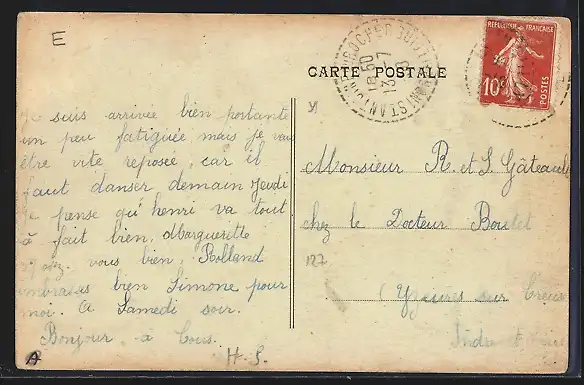 E
CARTE POSTALE
REPUBLIQUE FRANÇAISE
10
POSTES
18 50
13 - 7
Je suis arrivée bien portante
un peu fatiguée mais je veux
être vite reposée, car il
faut danser demain Jeudi
je pense qu'henri va tout
à fait bien, Marguerette
vous bien, Rolland
embrasse bien Simone pour
moi. A Samedi soir.
Bonjour à tous.
H. S.
Monsieur R. et S. Gâteault
chez le Docteur Boutet
127
Yzeures sur Creuse
Indre et Loire